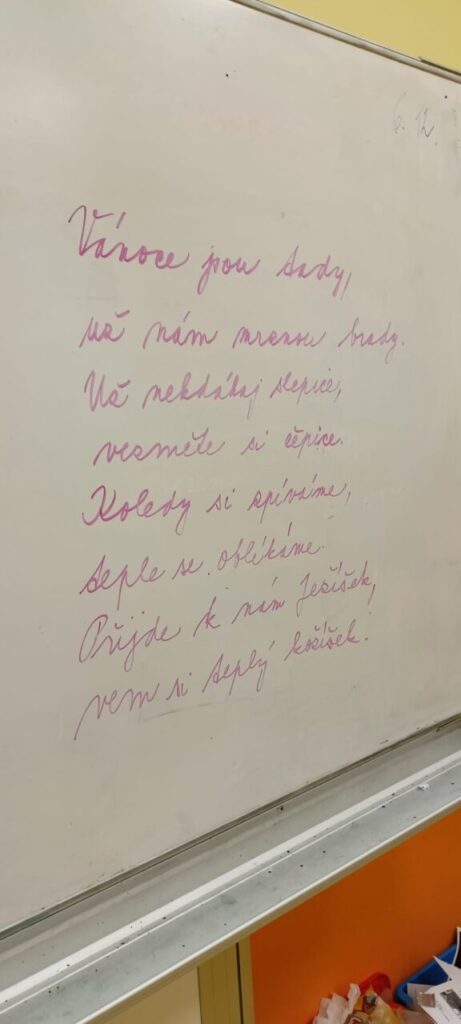 6. 12.
Vánoce jsou tady,
už nám mrznou brady.
Už nekdákaj slepice,
vezměte si čépice.
Koledy si zpíváme,
teple se oblékáme.
Přijde k nám Ježíšek,
vem si teplý kožíšek!